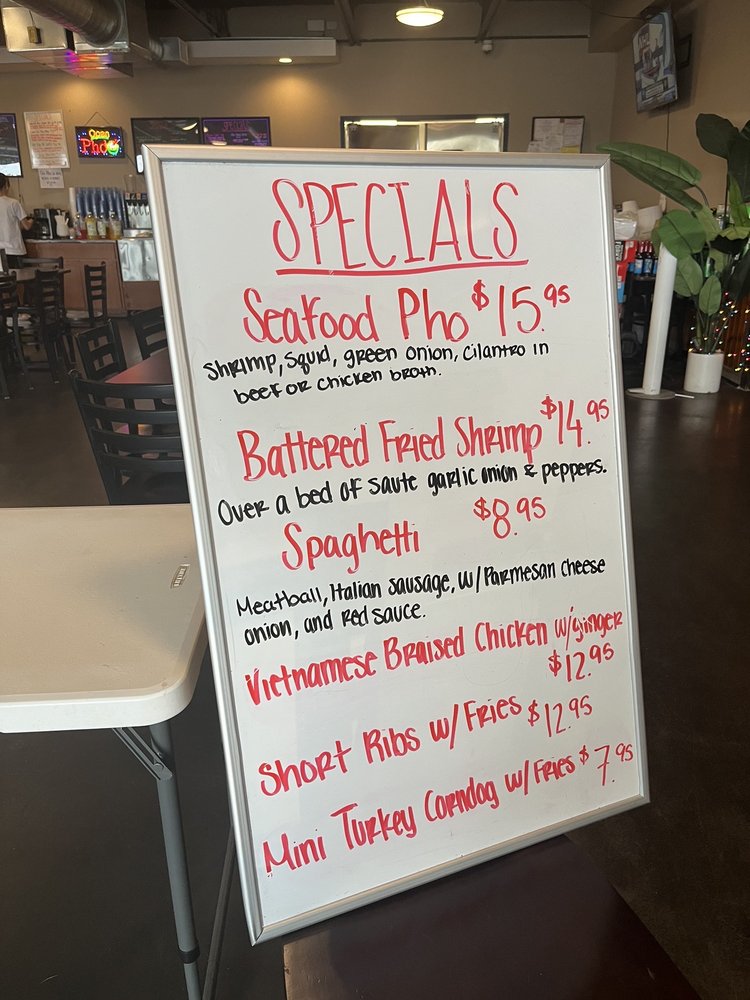 SPECIALS
Seafood Pho $15.95
Shrimp, Squid, green onion, cilantro in
beef or chicken broth.
Battered Fried Shrimp $14.95
Over a bed of saute garlic onion & peppers.
Spaghetti $8.95
Meatball, Italian Sausage, w/Parmesan cheese
onion, and Red sauce.
Vietnamese Braised Chicken w/ginger
$12.95
Short Ribs w/ Fries $12.95
Mini Turkey Corndog w/ Fries $7.95
Pho
SPECIALS